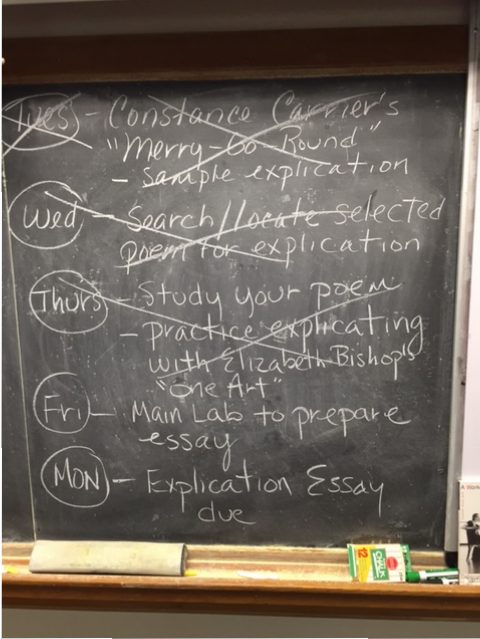 Tues - Constance Carrier's
"Merry-Go-Round"
- sample explication
Wed - Search/locate selected
poem for explication
Thurs - Study your poem
- practice explicating
with Elizabeth Bishop's
"One Art"
Fri - Main Lab to prepare
essay
MON - Explication Essay
due
12
CHALK